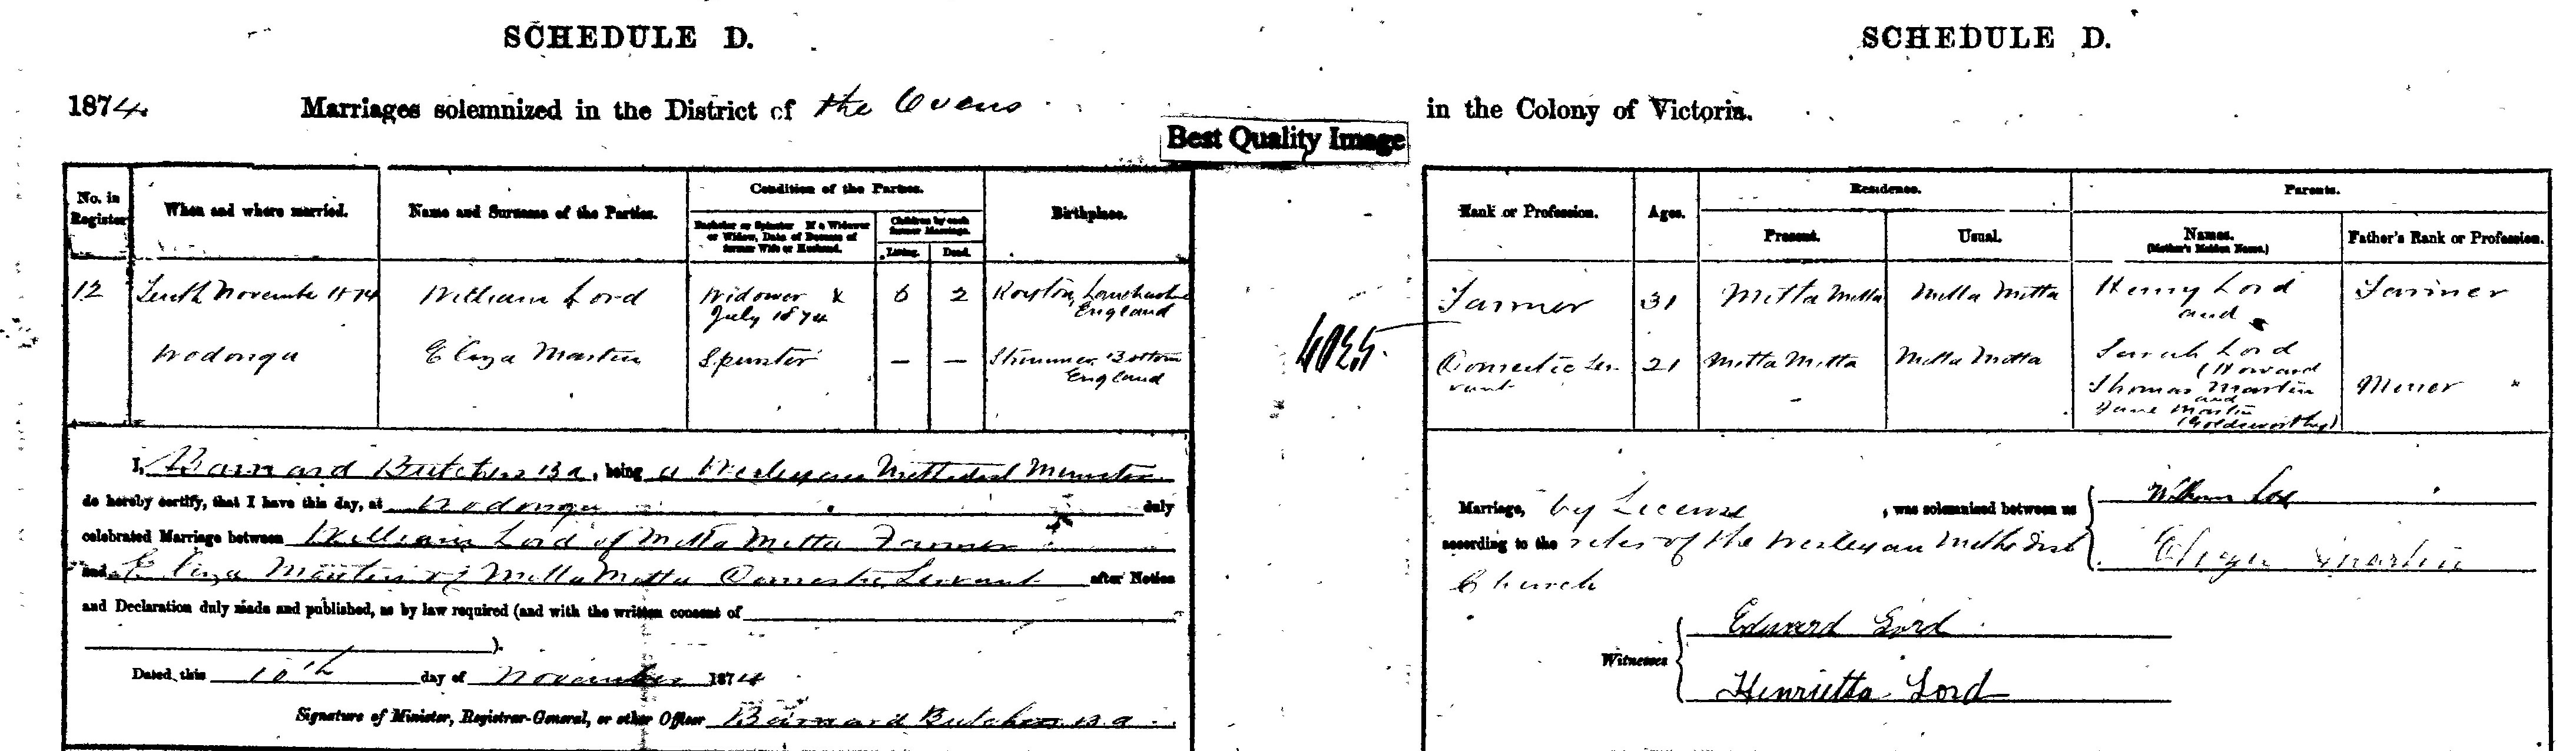 SCHEDULE D.
SCHEDULE D.
1874. Marriages solemnized in the District of the Ovens
in the Colony of Victoria.
Best Quality Image
No. in Register
When and where married.
Name and Surname of the Parties.
Condition of the Parties.
Bachelor or Spinster. If a Widower or Widow, Date of Decease of former Wife or Husband.
Children by each former Marriage.
Living.
Dead.
Birthplace.
Rank or Profession.
Ages.
Residence.
Present.
Usual.
Parents.
Names.
(Mother's Maiden Name.)
Father's Rank or Profession.
12 Tenth November 1874 William Lord Widower 6 2 Royton, Lancashire
July 1874 England
Wodonga Eliza Martin Spinster — — Bottom
England
4025
Farmer 31 Mitta Mitta Mitta Mitta Henry Lord Farmer
and
Domestic Ser- 21 Mitta Mitta Mitta Mitta Sarah Lord
vant (Howard
Thomas Martin Miner
and
Jane Martin
(Goldsworthy)
I, Barnard Butcher B a, being a Wesleyan Methodist Minister
do hereby certify, that I have this day, at Wodonga duly
celebrated Marriage between William Lord of Mitta Mitta Farmer
and Eliza Martin of Mitta Mitta Domestic Servant after Notice
and Declaration duly made and published, as by law required (and with the written consent of
).
Dated this 10th day of November 1874
Signature of Minister, Registrar-General, or other Officer Barnard Butcher B.a.
Marriage, by License, was solemnized between us
William Lord
according to the rites of the Wesleyan Methodist
Eliza Martin
Church
Witnesses
Edward Lord
Henrietta Lord